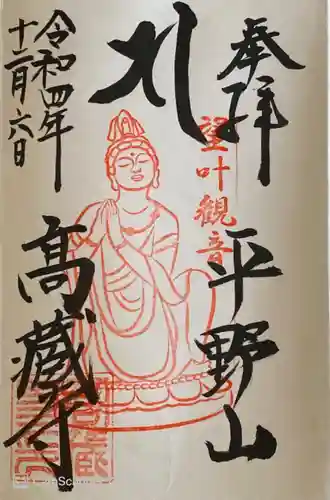 奉拝
平野山
望叶観音
令和四年
十二月六日
高蔵寺